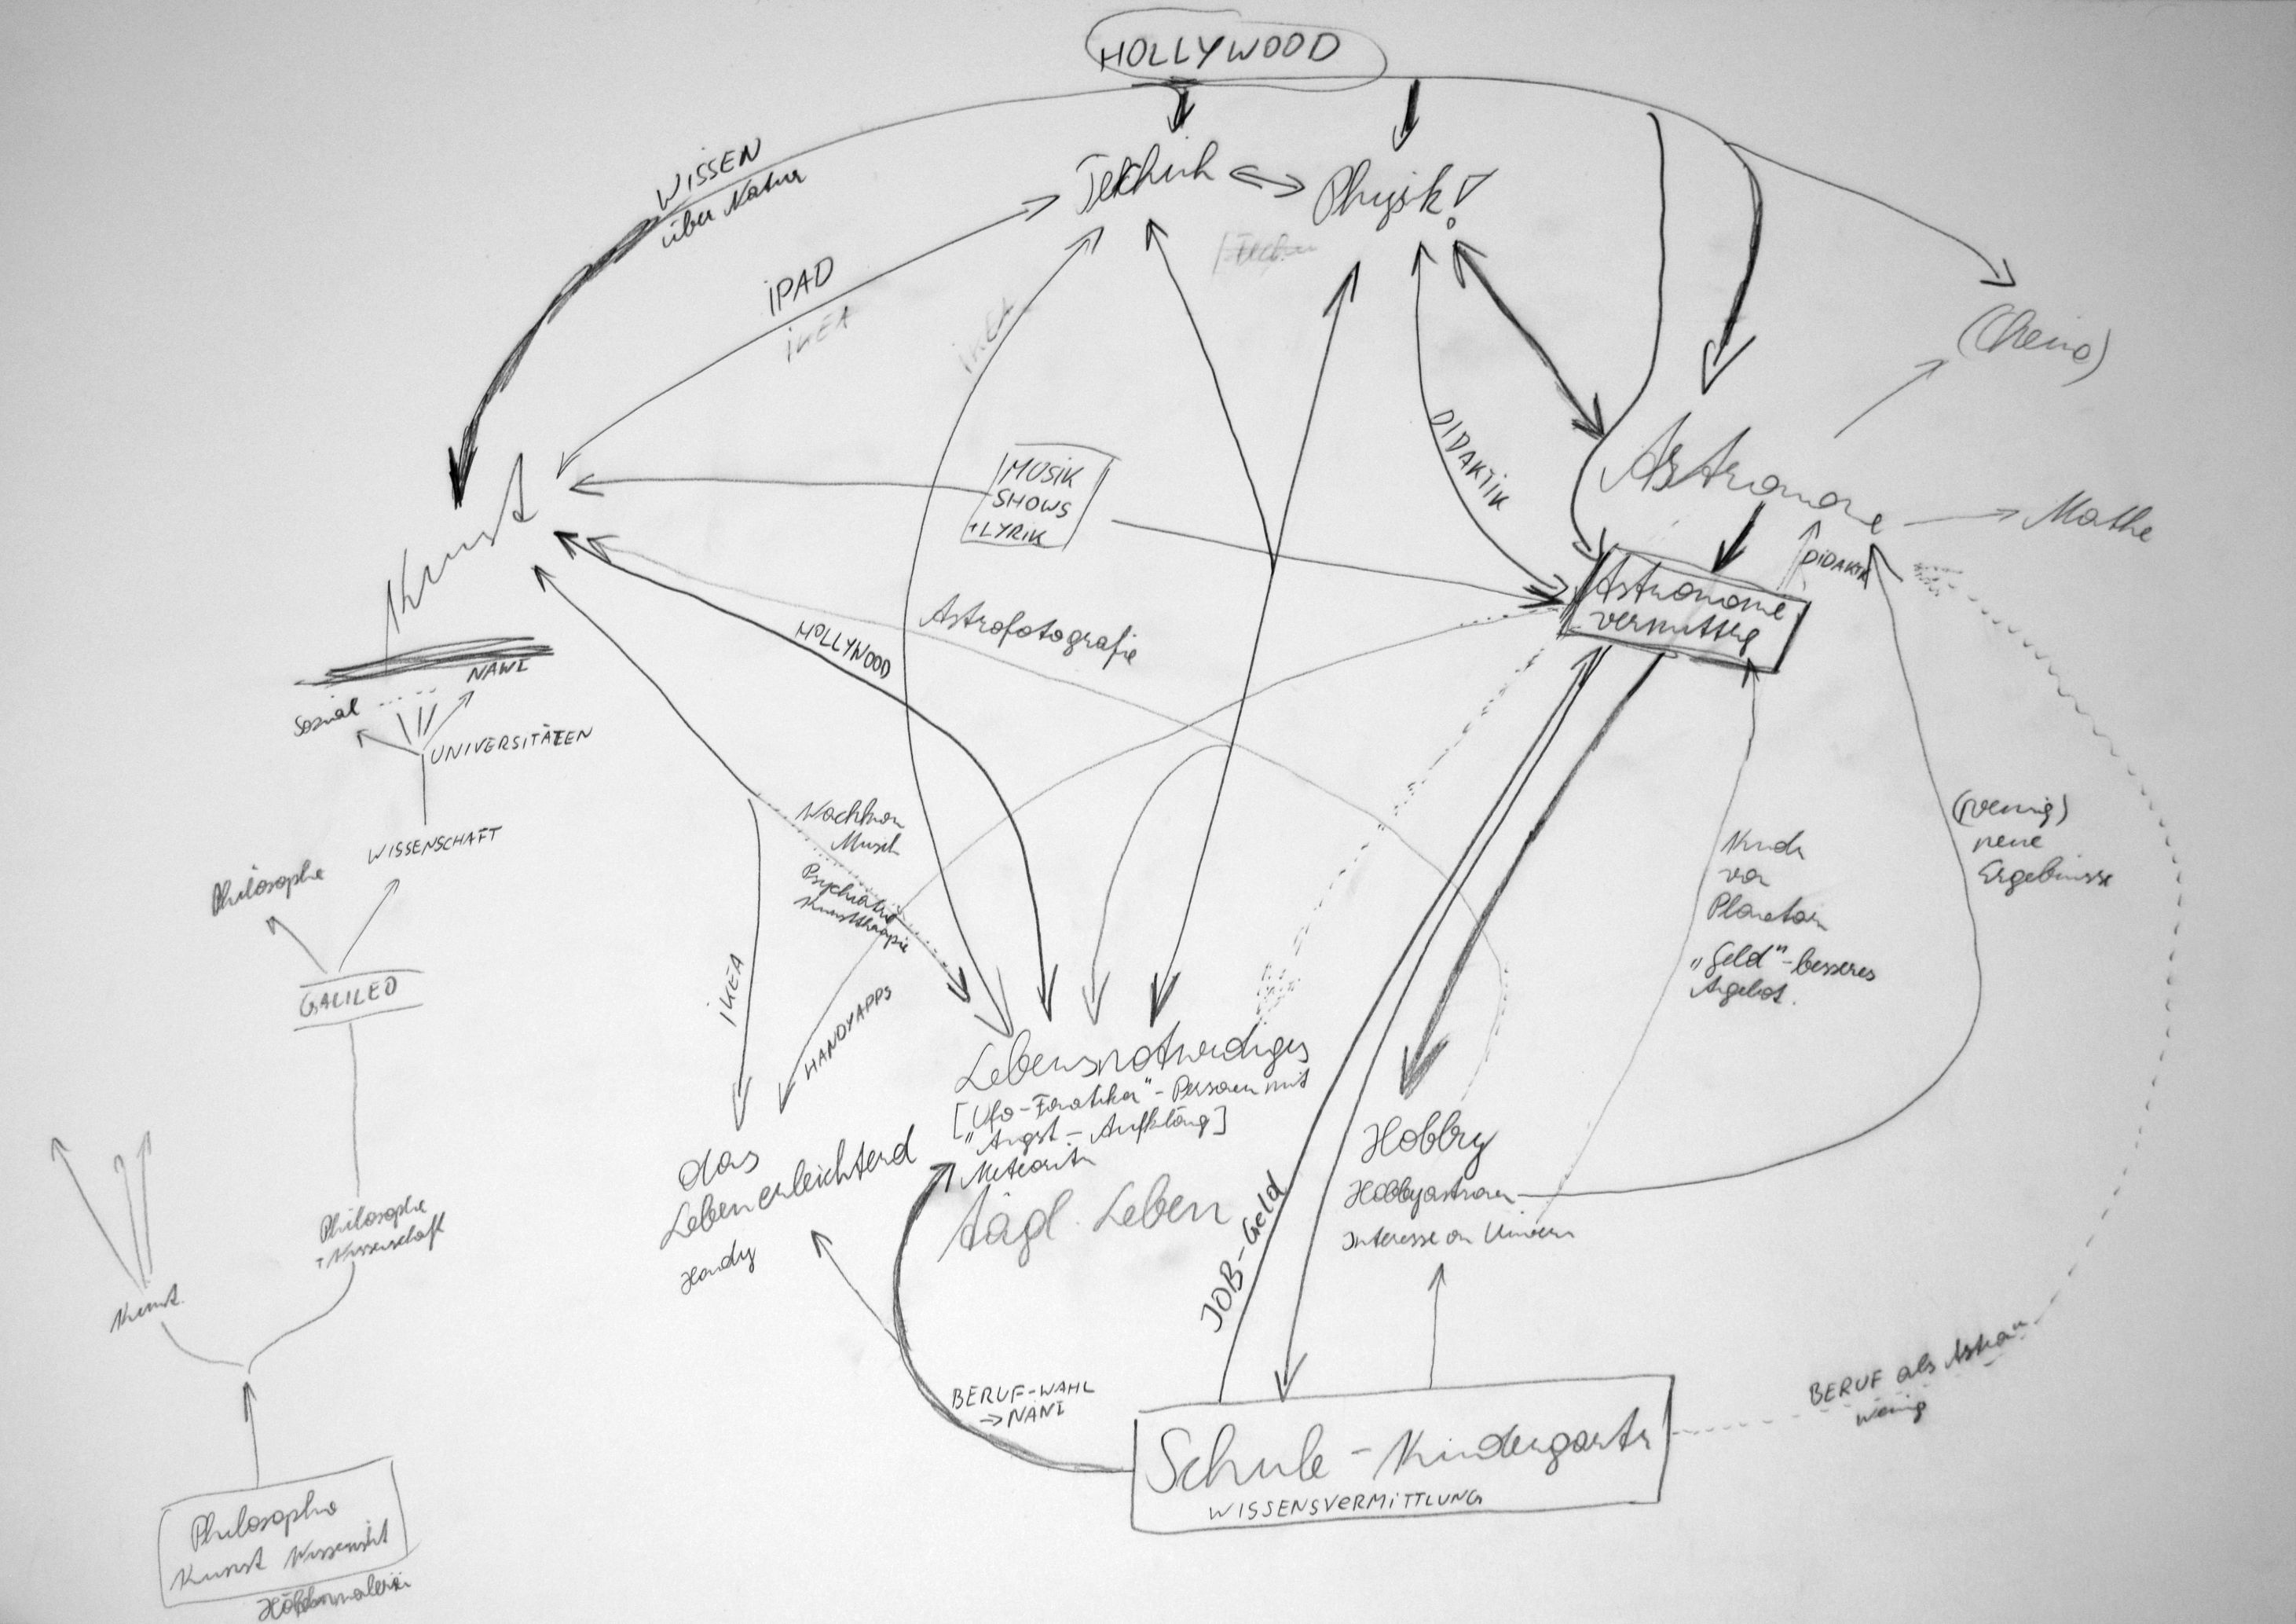 HOLLYWOOD
WISSEN
über Natur
Technik
Physik!
IPAD
IKEA
IKEA
(Chemie)
DIDAKTIK
MUSIK
SHOWS
+LYRIK
Astronomie
Mathe
Kunst
DIDAKTIK
Astronomie
vermittlg
Astrofotografie
HOLLYWOOD
NAWI
Sozial
UNIVERSITÄTEN
WISSENSCHAFT
Philosophie
GALILEO
Musik
Psychiatrie
Kunsttherapie
IKEA
HANDYAPPS
(wenig)
neue
Ergebnisse
von
Planetarien
"Geld"-besseres
Angebot.
Lebensnotwendiges
["Ufo-Fanatiker"-Personen mit
"Angst-Aufklärung]
Meteoriten
tägl. Leben
das
Leben erleichternd
Handy
Hobby
Hobbyastronom
Interesse an
JOB-Geld
Philosophie
+Wissenschaft
Kunst
BERUF-WAHL
BERUF als
wenig
Schule - Kindergarten
WISSENSVERMITTLUNG
Philosophie
Kunst Wissenschaft
Höhlenmalerei